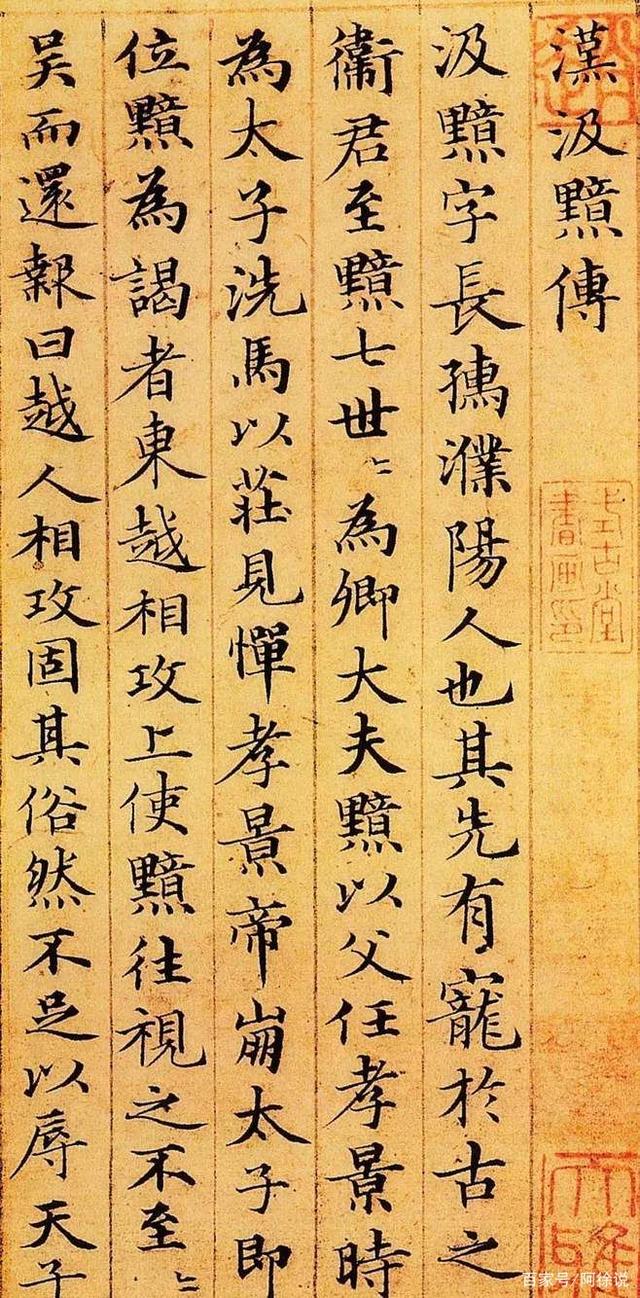 漢汲黯傳
汲黯字長孺濮陽人也其先有寵於古之
衛君至黯七世〻為卿大夫黯以父任孝景時
為太子洗馬以莊見憚孝景帝崩太子即
位黯為謁者東越相攻上使黯往視之不至〻
吴而還報曰越人相攻固其俗然不足以辱天子
式古堂
書畫印
百家号/阿徐说